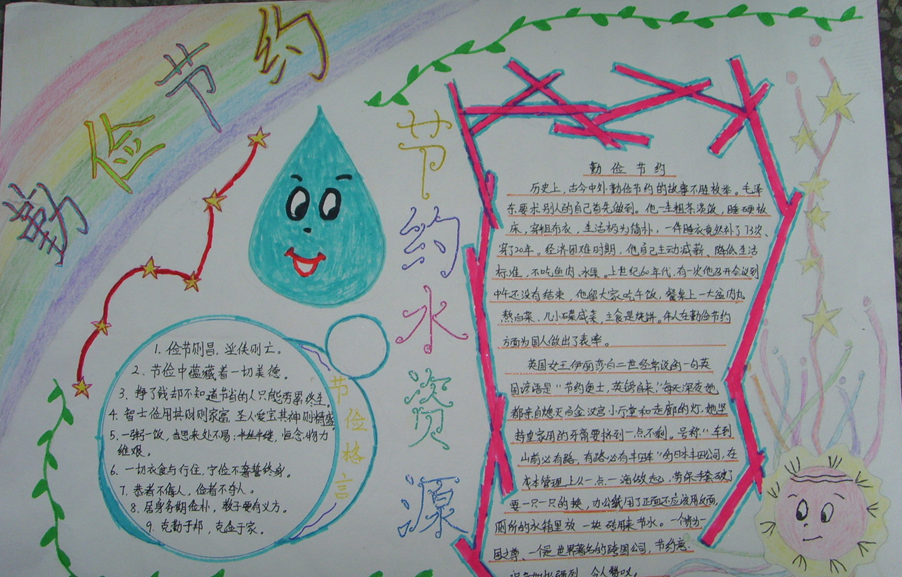 勤俭节约
节约水资源
节俭格言
1. 俭节则昌，淫佚则亡。
2. 节俭中蕴藏着一切美德。
3. 挣了钱却不知道节省的人只能劳累终生。
4. 智士俭用其财则家富 圣人爱宝其神则精盛。
5. 一粥一饭，当思来处不易；半丝半缕，恒念物力
维艰。
6. 一切衣食与行住，宁俭不奢誓终身。
7. 恭者不侮人，俭者不夺人。
8. 居身务期俭朴，教子要有义方。
9. 克勤于邦，克俭于家。
勤俭节约
历史上，古今中外勤俭节约的故事不胜枚举。毛泽
东要求别人的自己首先做到。他一生粗茶淡饭，睡硬板
床，穿粗布衣，生活极为简朴，一件睡衣竟然补了73次、
穿了20年。经济困难时期，他自己主动减薪、降低生活
标准，不吃鱼肉、水果。上世纪60年代，有一次他召开会议到
中午还没有结束，他留大家吃午饭，餐桌上一大盆肉丸
熬白菜、几小碟咸菜，主食是烧饼。伟人在勤俭节约
方面为国人做出了表率。
英国女王伊丽莎白二世经常说的一句英
国谚语是“节约便士，英镑自来”，每天深夜她
都亲自熄灭白金汉宫小厅堂和走廊的灯，她坚
持皇家用的牙膏要挤到一点不剩。号称“车到
山前必有路，有路必有丰田车”的日本丰田公司，在
成本管理上从一点一滴做起，劳保手套破了
要一只一只的换，办公纸用了正面还应该用反面，
厕所的水箱里放一块砖用来节水。一个贵为一
国之尊、一个是世界著名的跨国公司，节约意
令人赞叹。